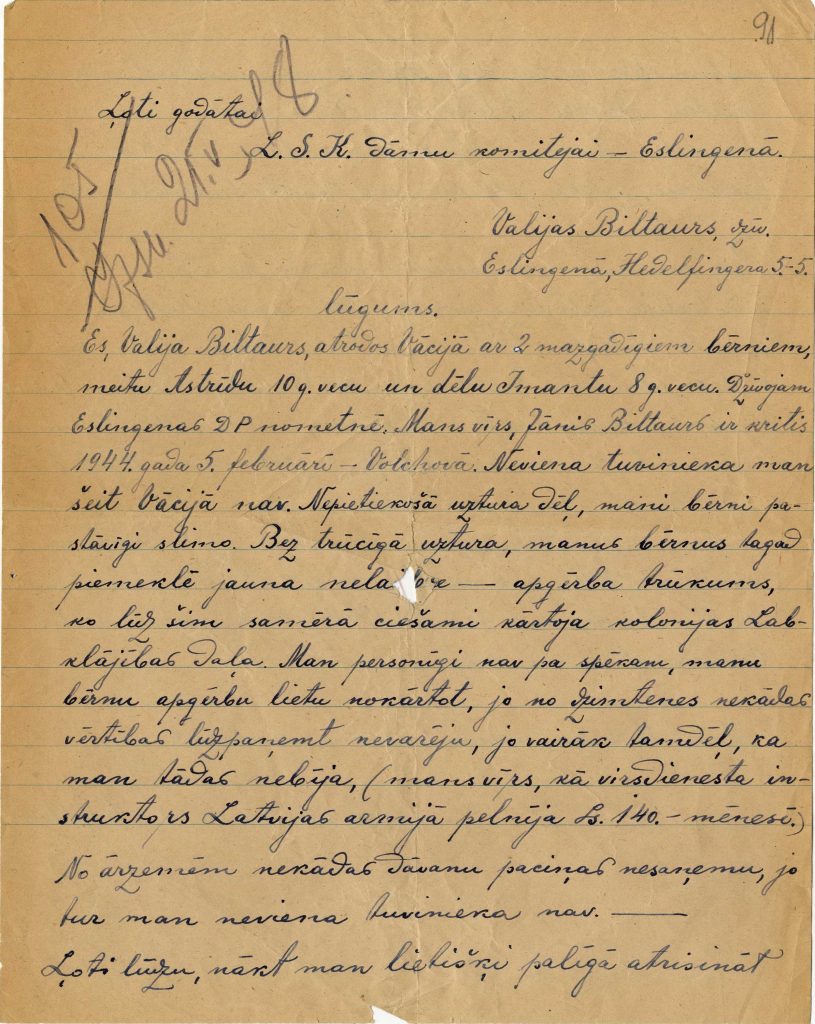 91
Ļoti godātai
L. S. K. Dāmu komitejai – Eslingenā.
105
21. V 48
Valijas Biltaurs, dzīv.
Eslingenā, Hedelfingera 5.-5.
lūgums.
Es, Valija Biltaurs, atrodos Vācijā ar 2 mazgadīgiem bērniem,
meitu Astrīdu 10 g. vecu un dēlu Imantu 8 g. vecu. Dzīvojam
Eslingenas DP nometnē. Mans vīrs, Jānis Biltaurs ir kritis
1944. gada 5. februārī – Volchovā. Neviena tuvinieka man
šeit Vācijā nav. Nepietiekošā uztura dēļ, mani bērni pa-
stāvīgi slimo. Bez trūcīgā uztura, manus bērnus tagad
piemeklē jauna — apģērba trūkums,
ko līdz šim samērā ciešami kārtoja kolonijas Lab-
klājības daļa. Man personīgi nav pa spēkam, manu
bērnu apģērbu lietu nokārtot, jo no dzimtenes nekādas
vērtības līdzpaņemt nevarēju, jo vairāk tamdēļ, ka
man tādas nebija, (mans vīrs, kā virsdienesta in-
struktors Latvijas armijā pelnīja Ls. 140.– mēnesī.)
No ārzemēm nekādas dāvanu paciņas nesaņemu, jo
tur man neviena tuvinieka nav. —
Ļoti lūdzu, nākt man lietišķi palīgā atrisināt